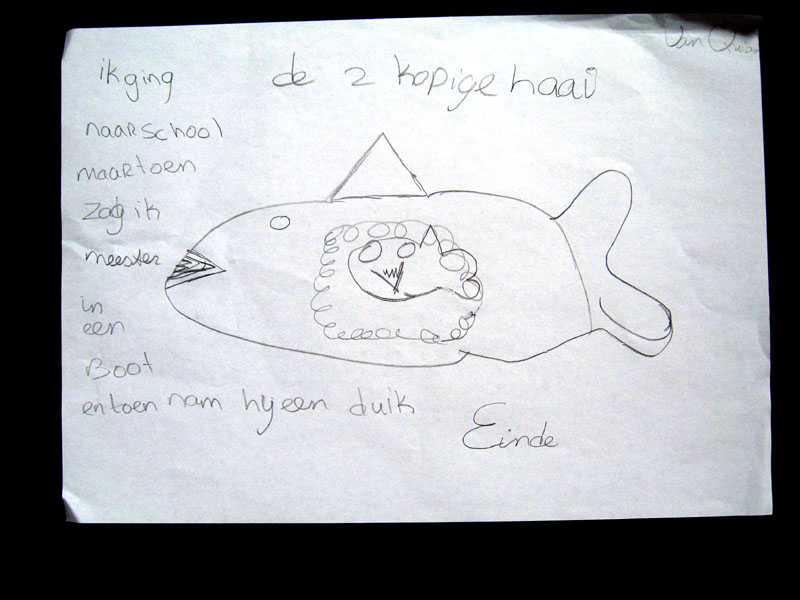 Van
de 2 kopige haai
ik ging
naar school
maar toen
zag ik
meester
in
een
Boot
en toen nam hij een duik
Einde